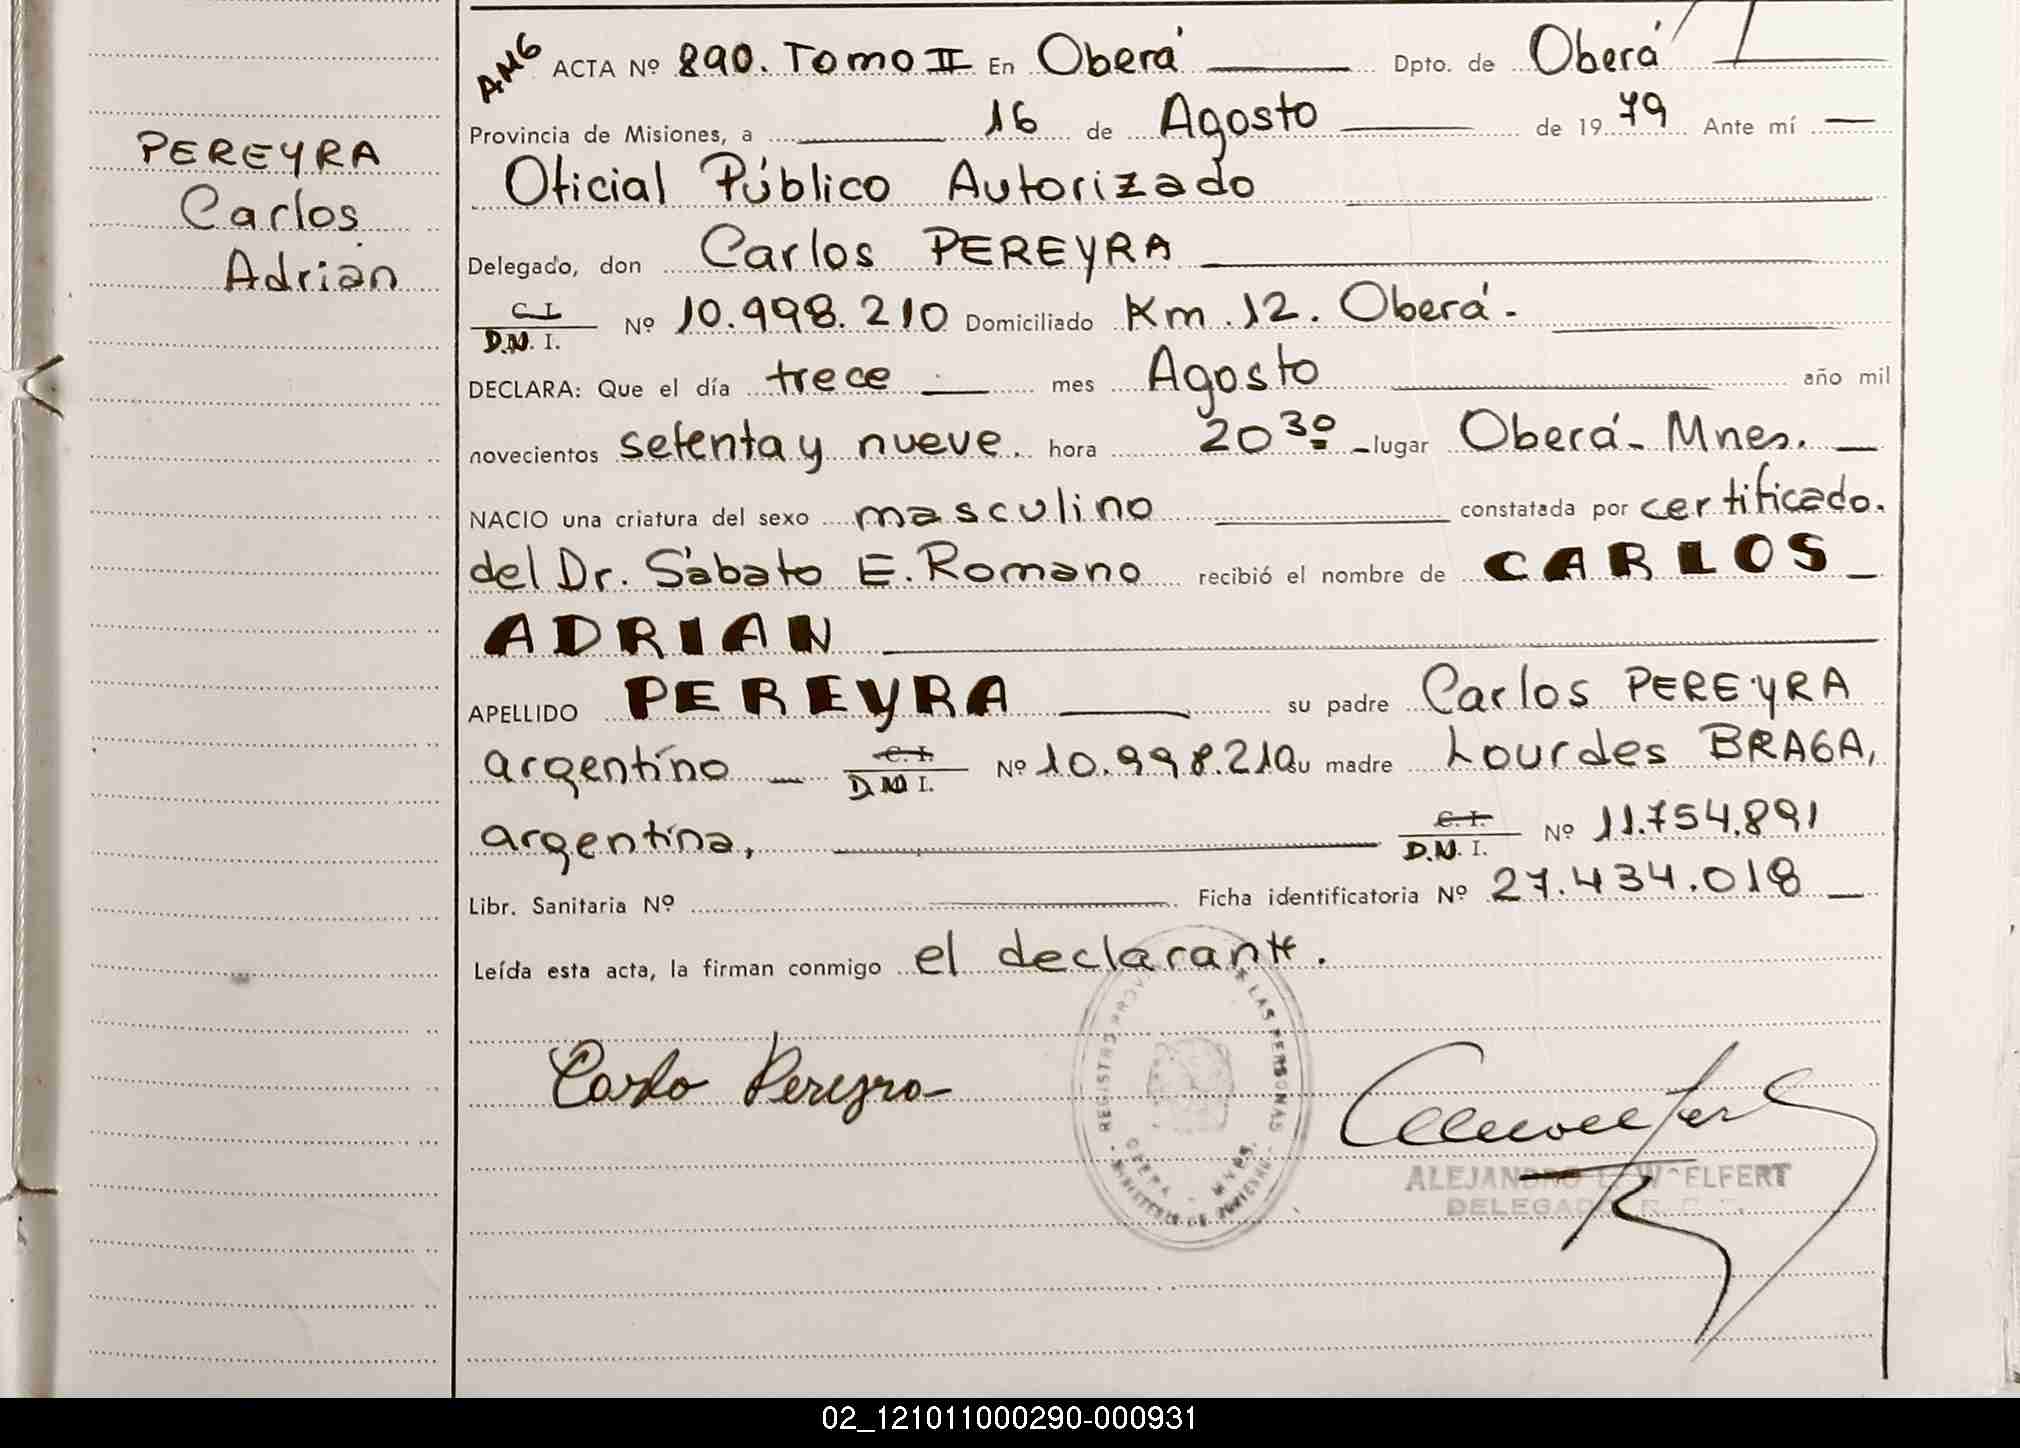 AMG ACTA Nº 890. Tomo II En Oberá Dpto. de Oberá
Provincia de Misiones, a 16 de Agosto de 1979 Ante mí
Oficial Público Autorizado
Delegado, don Carlos PEREYRA
C. I.
D.N. I. Nº 10.998.210 Domiciliado Km. 12. Oberá.
DECLARA: Que el día trece mes Agosto año mil
novecientos setenta y nueve. hora 20 30 lugar Oberá - Mnes.
NACIO una criatura del sexo masculino constatada por certificado.
del Dr. Sábato E. Romano recibió el nombre de CARLOS
ADRIAN
APELLIDO PEREYRA su padre Carlos PEREYRA
argentino C. I.
D.N I. Nº 10.998.210 su madre Lourdes BRAGA,
argentina, C. I.
D.N. I. Nº 11.754.891
Libr. Sanitaria Nº Ficha identificatoria Nº 27.434.018
Leída esta acta, la firman conmigo el declarante.
PEREYRA
Carlos
Adrián
Carlo Pereyra
REGISTRO PROV LAS PERSONAS
OBERA - MNES.
MINISTERIO DE GOBIERNO
ALEJANDRO WELFERT
DELEGADO R.
02_121011000290-000931